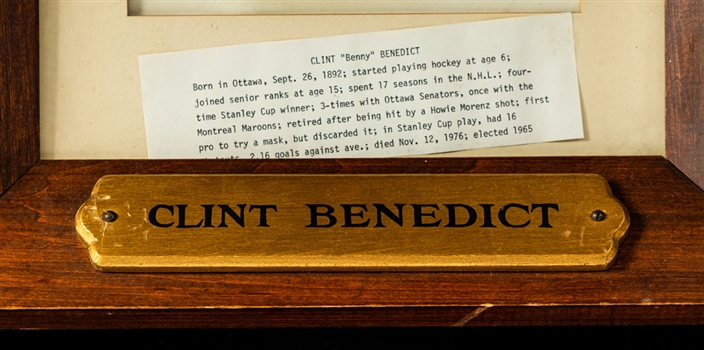 CLINT "Benny" BENEDICT
Born in Ottawa, Sept. 26, 1892; started playing hockey at age 6;
joined senior ranks at age 15; spent 17 seasons in the N.H.L.; four-
time Stanley Cup winner; 3-times with Ottawa Senators, once with the
Montreal Maroons; retired after being hit by a Howie Morenz shot; first
pro to try a mask, but discarded it; in Stanley Cup play, had 16
2.16 goals against ave.; died Nov. 12, 1976; elected 1965
CLINT BENEDICT